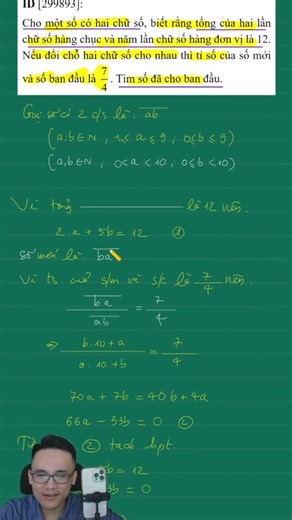 ID [299893]:
Cho một số có hai chữ số, biết rằng tổng của hai lần
chữ số hàng chục và năm lần chữ số hàng đơn vị là 12.
Nếu đổi chỗ hai chữ số cho nhau thì tỉ số của số mới
và số ban đầu là 7/4. Tìm số đã cho ban đầu.
Gọi số có 2 c/s là: ab
(a,b∈N, 1≤a≤9; 0≤b≤9)
(a,b∈N, 0<a<10; 0≤b<10)
Vì tổng là 12 nên:
2.a + 5b = 12 ①
số mới là ba
Vì ts của s/m và s/c là 7/4 nên.
ba/ab = 7/4
⇒ b.10+a / a.10+b = 7/4
70a + 7b = 40b + 4a
66a - 33b = 0 ②
② ta có hpt.
= 12
= 0